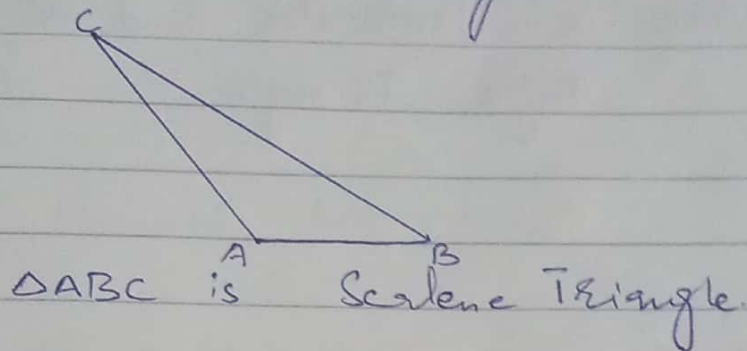 C
A B
△ABC is Scalene Triangle.